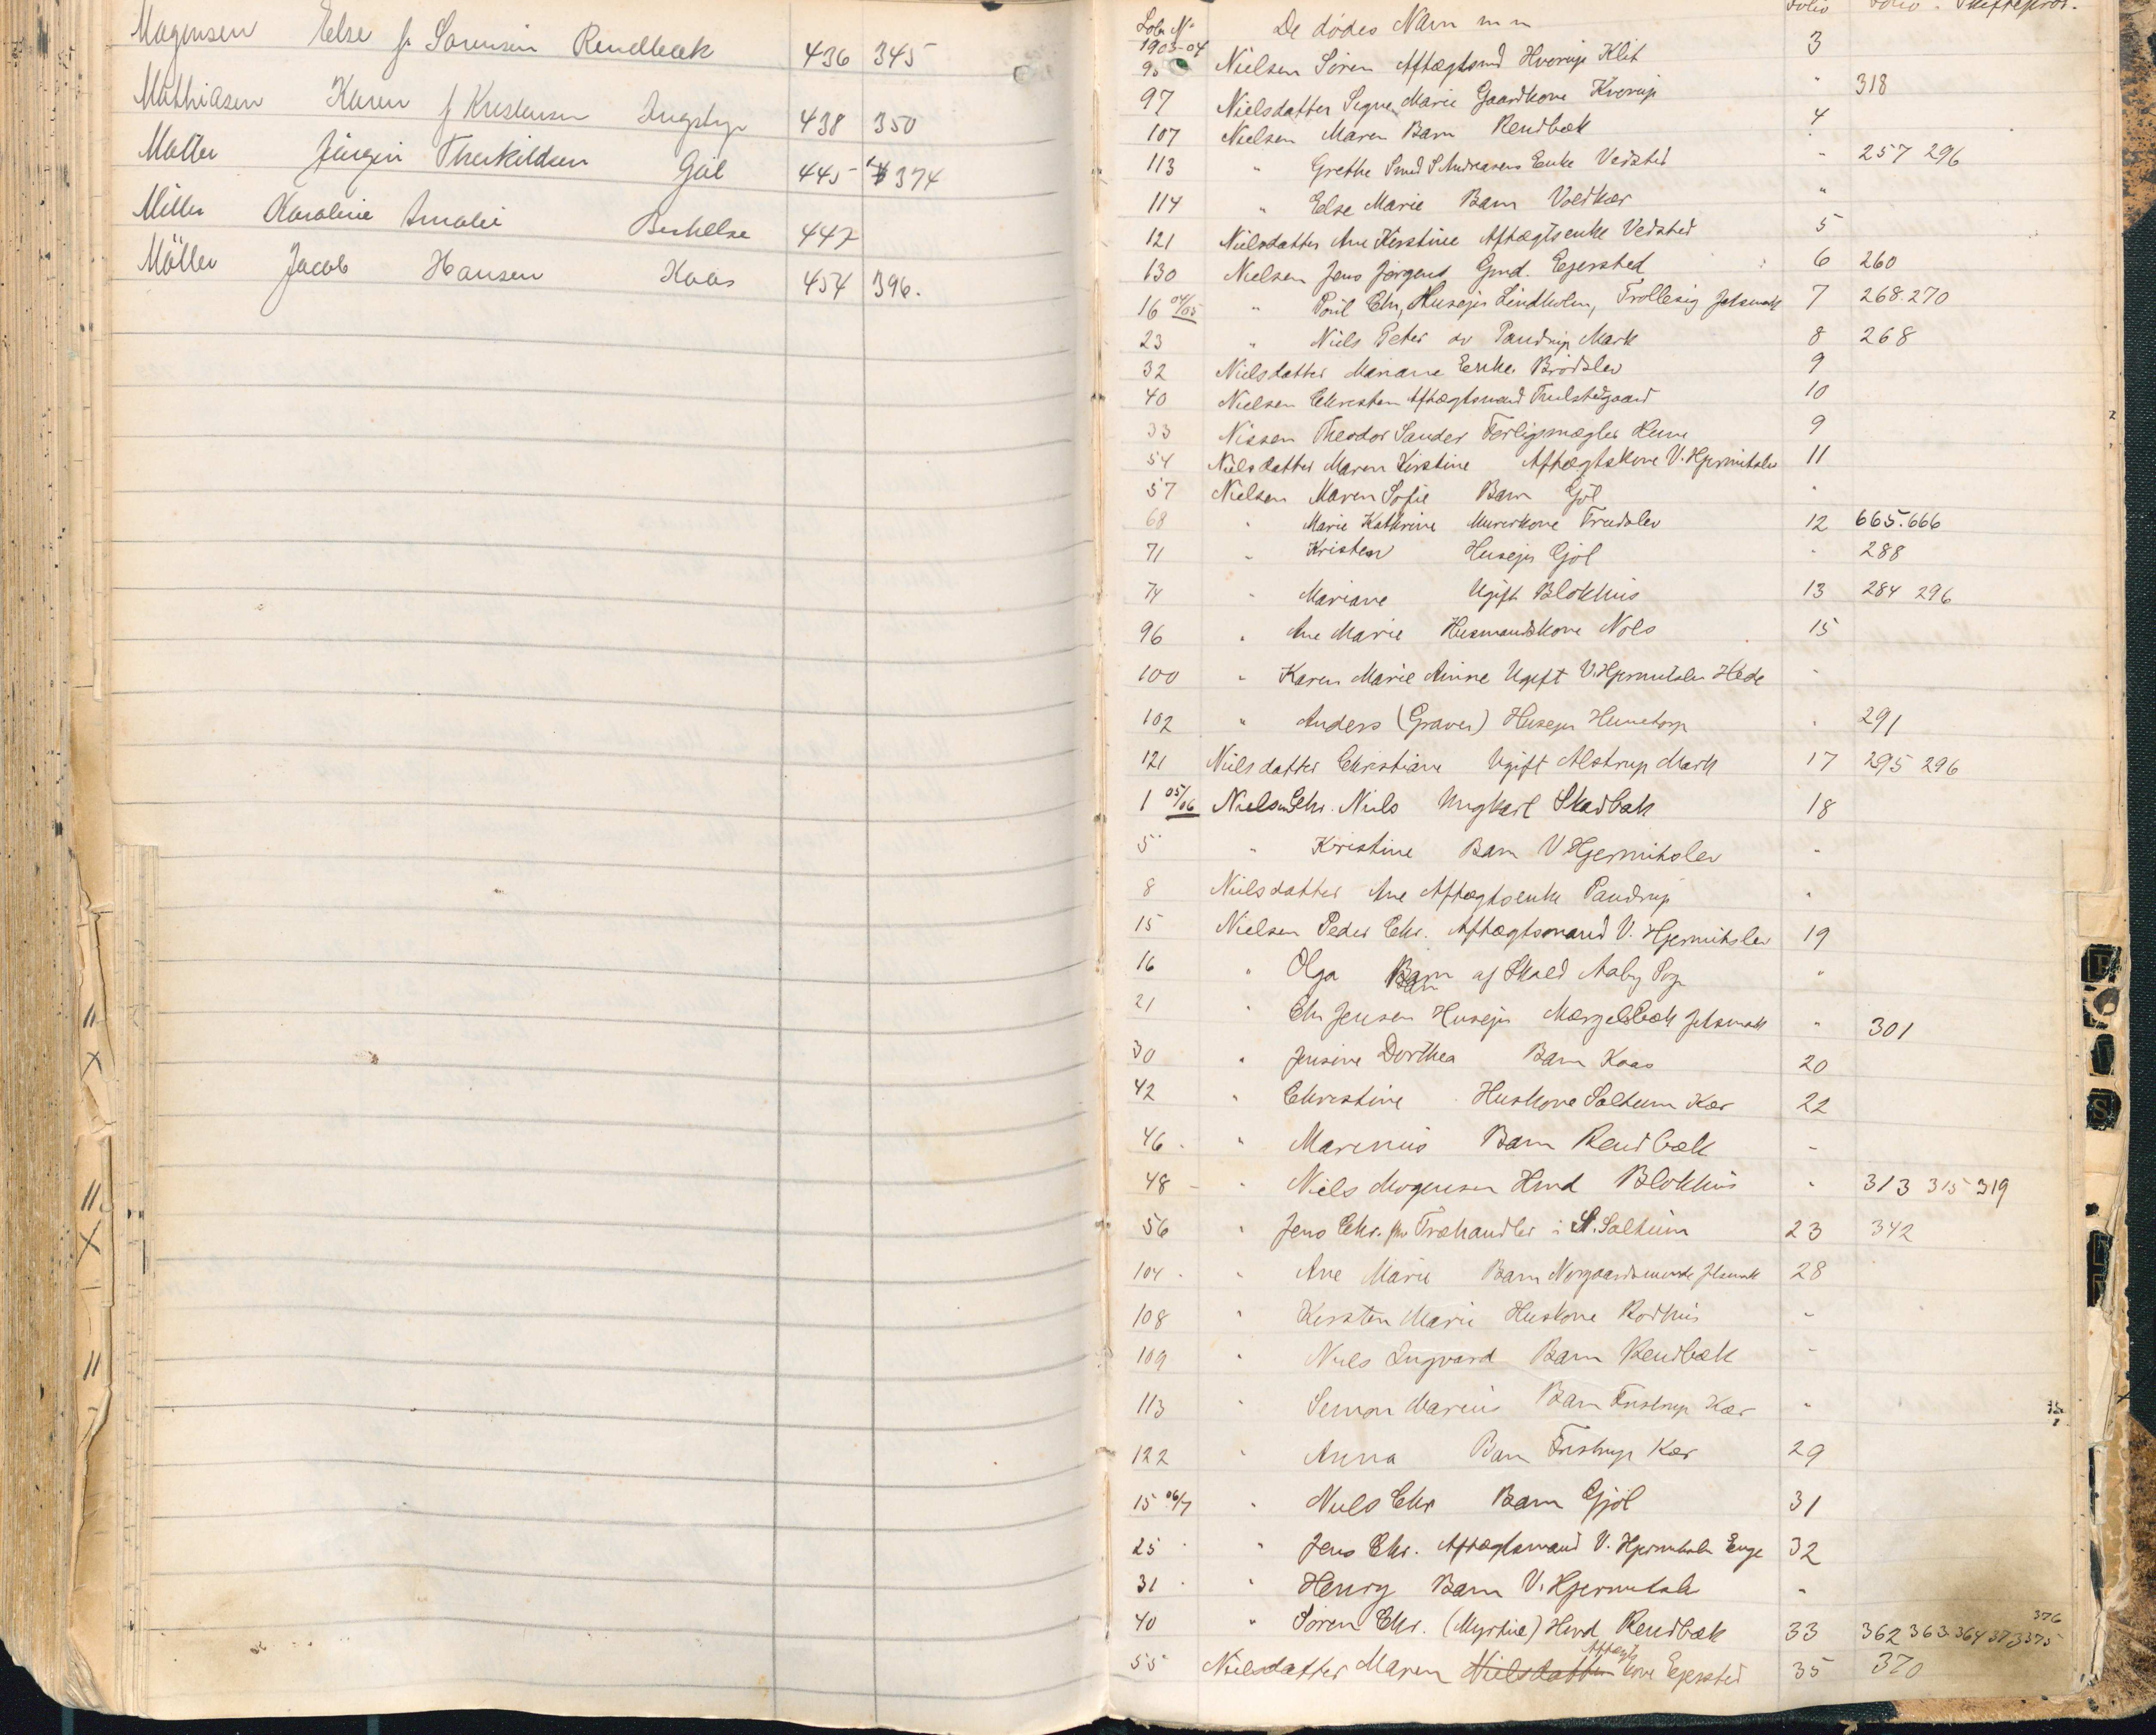 Mogensen Else f. Sørensen Rendbæk 436 345
Mathiasen Karen f Kristensen Ingstrup 438 350
Møller Jürgen Therkildsen Gøl 445 374
Möller Karoline Amalie 447
Möller Jacob Hansen Kaas 454 396.
Løb. No De dødes Navn m m Folio Folio i Skifteprot.
1903-04
95 Nielsen Søren Aftægtsmd Hvorup Klit 3
97 Nielsdatter Signe Marie Gaardkone Kvorup " 318
107 Nielsen Maren Barn Rendbæk 4
113 " Grethe Smed S Andreasens Enke Vedsted " 257 296
114 " Else Marie Barn Voldkær "
121 Nielsdatter Ane Kirstine Aftægtsenke Vedsted 5
130 Nielsen Jens Jørgens Gmd. Ejersted 6 260
16 04/05 " Poul Chr, Husejer Lindholm, Trollesig Jetsmark 7 268.270
23 " Niels Peter av Pandrup Mark 8 268
32 Nielsdatter Mariane Enke Brødslev 9
40 Nielsen Christen Aftægtsmand Trulstedgaard 10
33 Nissen Theodor Sander Hune 9
54 Nielsdatter Maren Kirstine Aftægtskone V. Hjermitslev 11
57 Nielsen Maren Sofie Barn Gjøl "
68 " Marie Kathrine Murerkone Trudslev 12 665.666
71 " Kristen Husejer Gjøl " 288
74 " Mariane Ugift Blokhus 13 284 296
96 " Ane Marie Husmandskone Nols 15
100 " Karen Marie Amine Ugift V. Hjermitslev Hede "
102 " Anders (Graver) Husejer Hunetorp " 291
121 Nielsdatter Christiane Ugift Alstrup Mark 17 295 296
1 05/06 Nielsen Chr. Niels Ungkarl Skadbæk 18
5 " Kristine Barn V Hjermitslev "
8 Nielsdatter Ane Aftægtsenke Pandrup "
15 Nielsen Peder Chr. Aftægtsmand V. Hjermitslev 19
16 " Olga Barn af Skald Aaby Sogn "
21 " Chr Jensen Husejer Mergelsbæk Jetsmark " 301
30 " Jensine Dorthea Barn Kaas 20
42 " Christine Huskone Saltum Kær 22
46 " Marinus Barn Rendbæk "
48 " Niels Mogensen Hmd Blokhus " 313 315 319
56 " Jens Chr. fhv Træhandler i S. Saltum 23 342
104 " Ane Marie Barn Jetsmark 28
108 " Kirsten Marie Huskone Rødhus "
109 " Niels Ingvard Barn Rendbæk "
113 " Simon Marius Barn Fristrup Kær "
122 " Anna Barn Fristrup Kær 29
15 06/7 " Niels Chr Barn Gjøl 31
25 " Jens Chr. Aftægtsmand V. Hjermitslev Enge 32
31 " Henry Barn V. Hjermitslev "
40 " Søren Chr. (Myrtue) Hmd Rendbæk 33 362 363 364 373 375 376
55 Nielsdatter Maren Nielsdatter Aftægtskone Ejersted 35 370